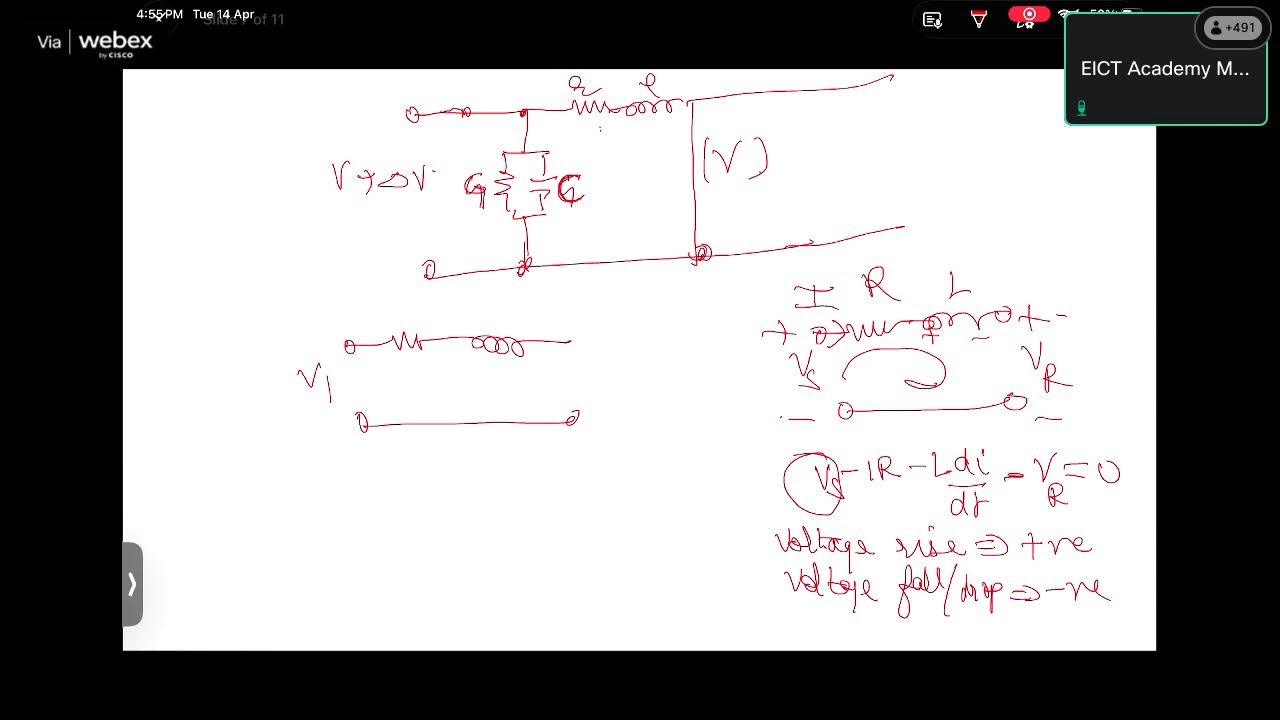 4:55PM Tue 14 Apr
Slide 7 of 11
+491
Via webex
by CISCO
EICT Academy M...
R L
V+ΔV G C (V)
I R L
+ + -
+ -
V1 Vs VR
- -
Vs - IR - L di/dt - VR = 0
voltage rise ⇒ +ve
voltage fall/drop ⇒ -ve